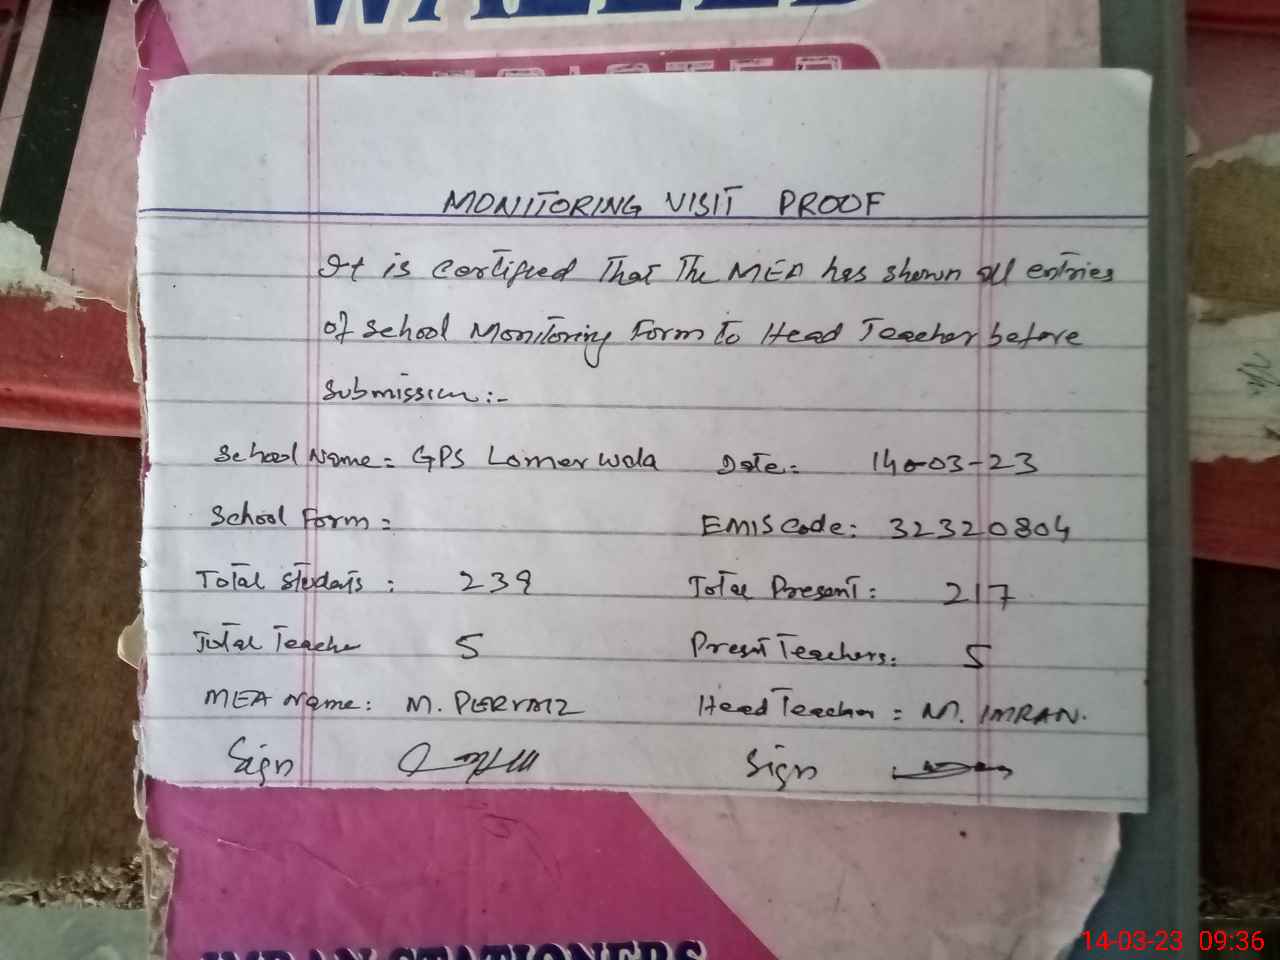 MONITORING VISIT PROOF
It is certified That The MEA has shown all entries
of School Monitoring Form To Head Teacher before
Submission:-
School Name = GPS Lomer Wala Date = 14-03-23
School Form = EMIS Code: 32320804
Total Students : 239 Total Present : 217
Total Teacher 5 Present Teachers: 5
MEA Name: M. PERVAIZ Head Teacher = M. IMRAN.
Sign Sign
IMRAN STATIONERS
14-03-23 09:36